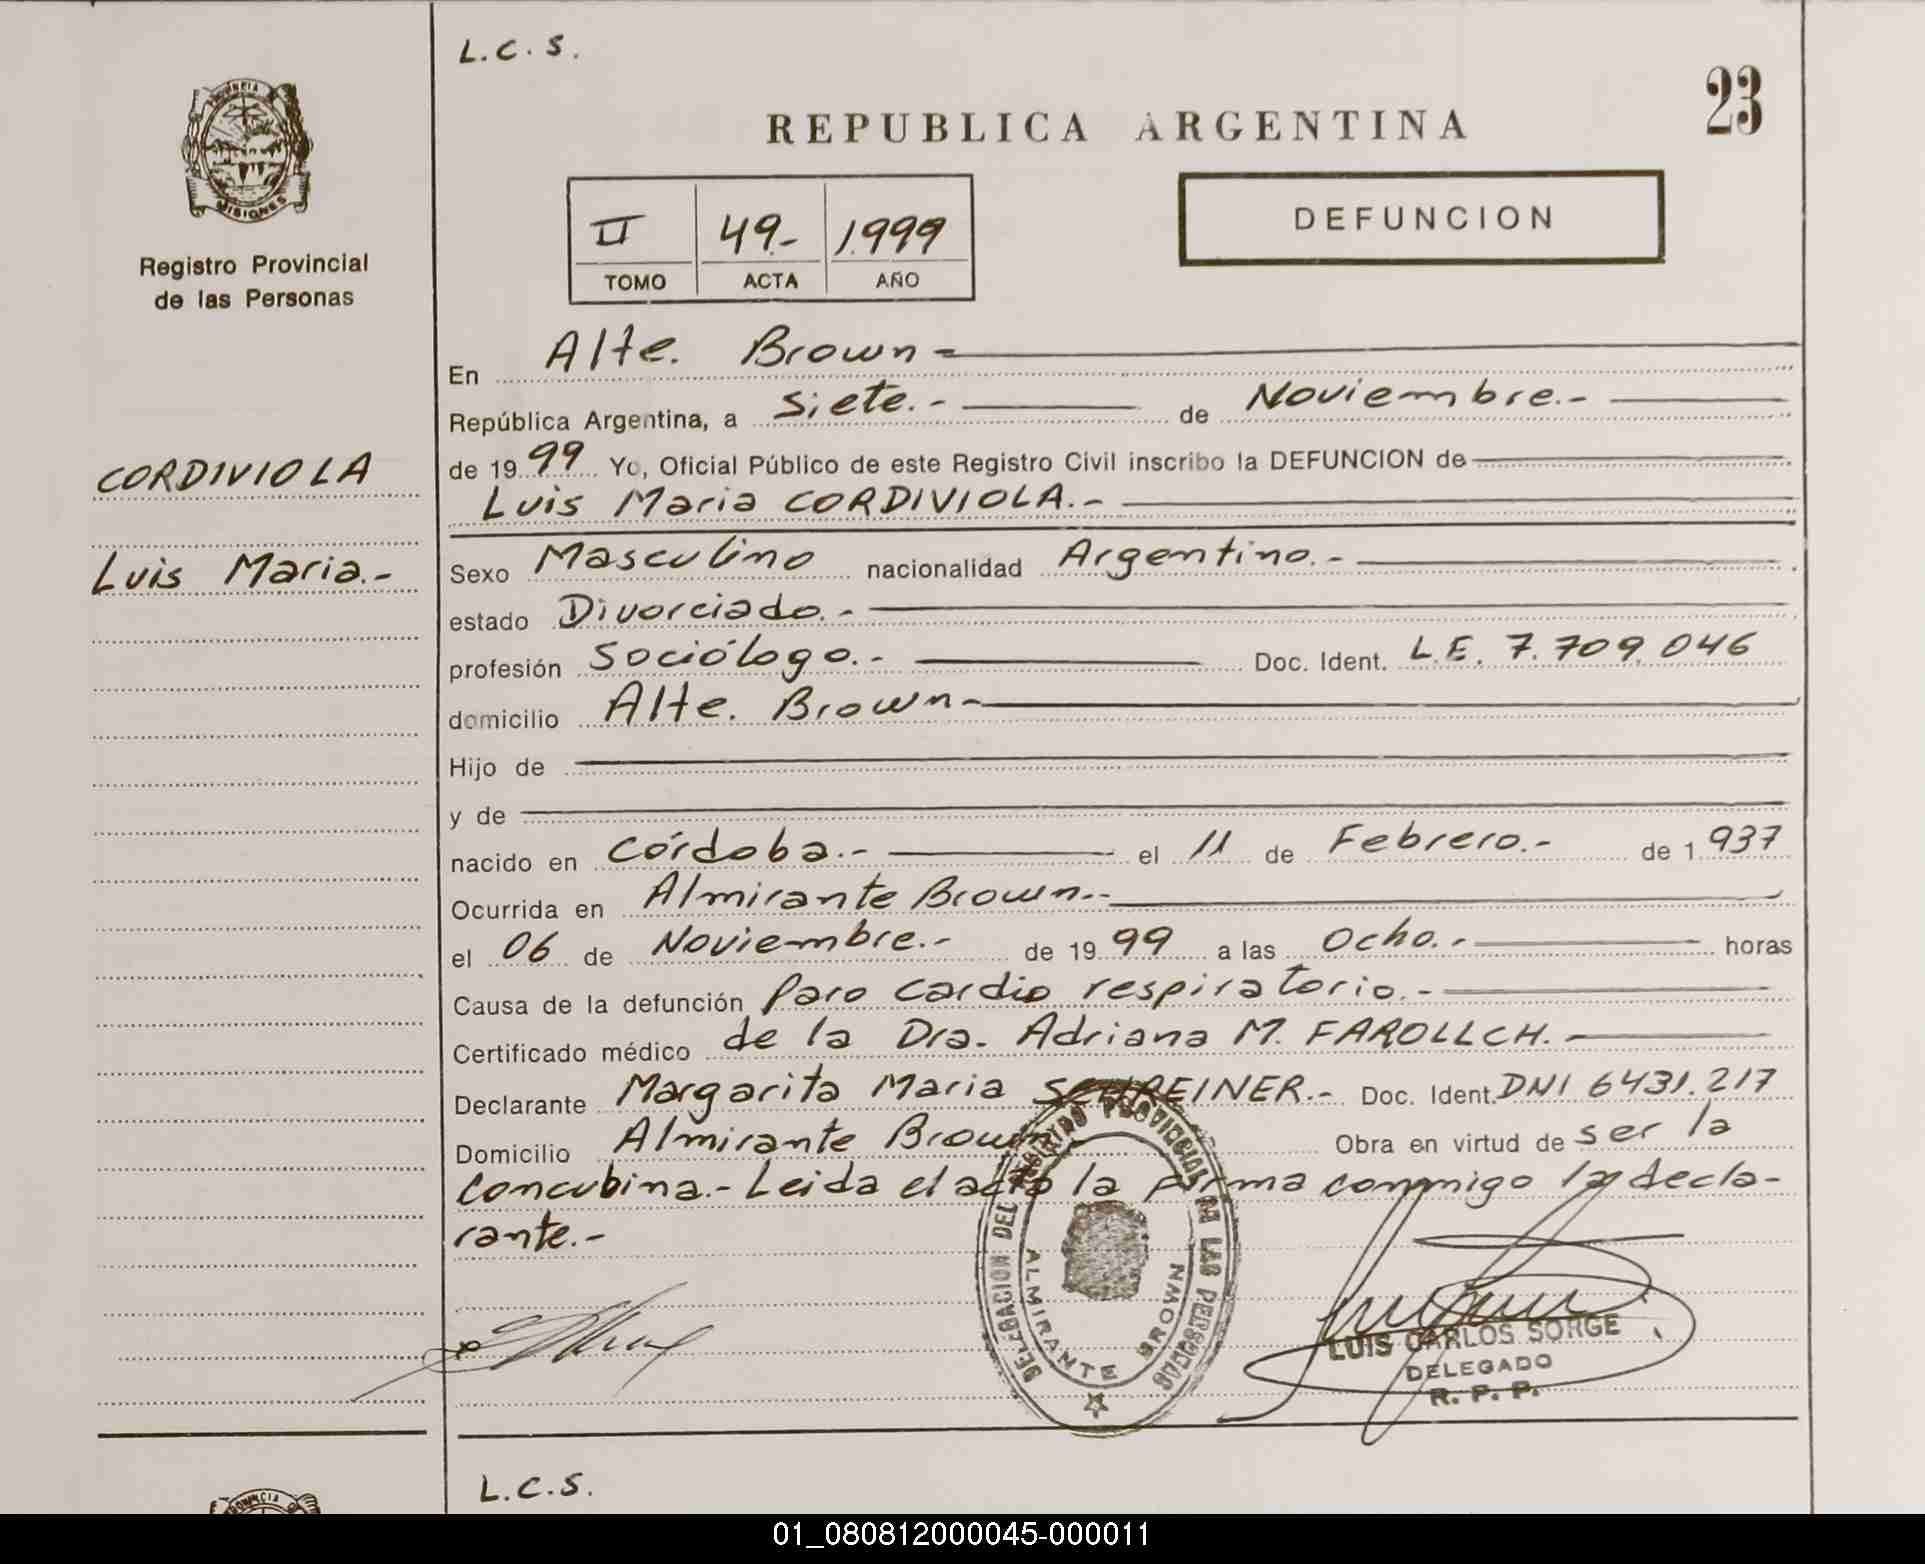 L.C.S.
23
REPUBLICA ARGENTINA
PROVINCIA DE
MISIONES
Registro Provincial
de las Personas
II 49.- 1.999
TOMO ACTA AÑO
DEFUNCION
CORDIVIOLA
Luis Maria.-
En Alte. Brown-
República Argentina, a Siete.- de Noviembre.-
de 1999 Yo, Oficial Público de este Registro Civil inscribo la DEFUNCION de
Luis Maria CORDIVIOLA.-
Sexo Masculino nacionalidad Argentino.-
estado Divorciado.-
profesión Sociólogo.- Doc. Ident. L.E. 7.709.046
domicilio Alte. Brown-
Hijo de
y de
nacido en Córdoba.- el 11 de Febrero.- de 1937
Ocurrida en Almirante Brown.-
el 06 de Noviembre.- de 1999 a las Ocho.- horas
Causa de la defunción Paro cardio respiratorio.-
Certificado médico de la Dra. Adriana M. FAROLLCH.-
Declarante Margarita Maria SCHREINER.- Doc. Ident. DNI 6431.217
Domicilio Almirante Brown.- Obra en virtud de ser la
Concubina.- Leida el acta la firma conmigo la decla-
rante.-
DELEGACION DEL REGISTRO PROVINCIAL DE LAS PERSONAS
ALMIRANTE BROWN
LUIS CARLOS SORGE
DELEGADO
R. P. P.
L.C.S.
PROVINCIA DE
01_080812000045-000011